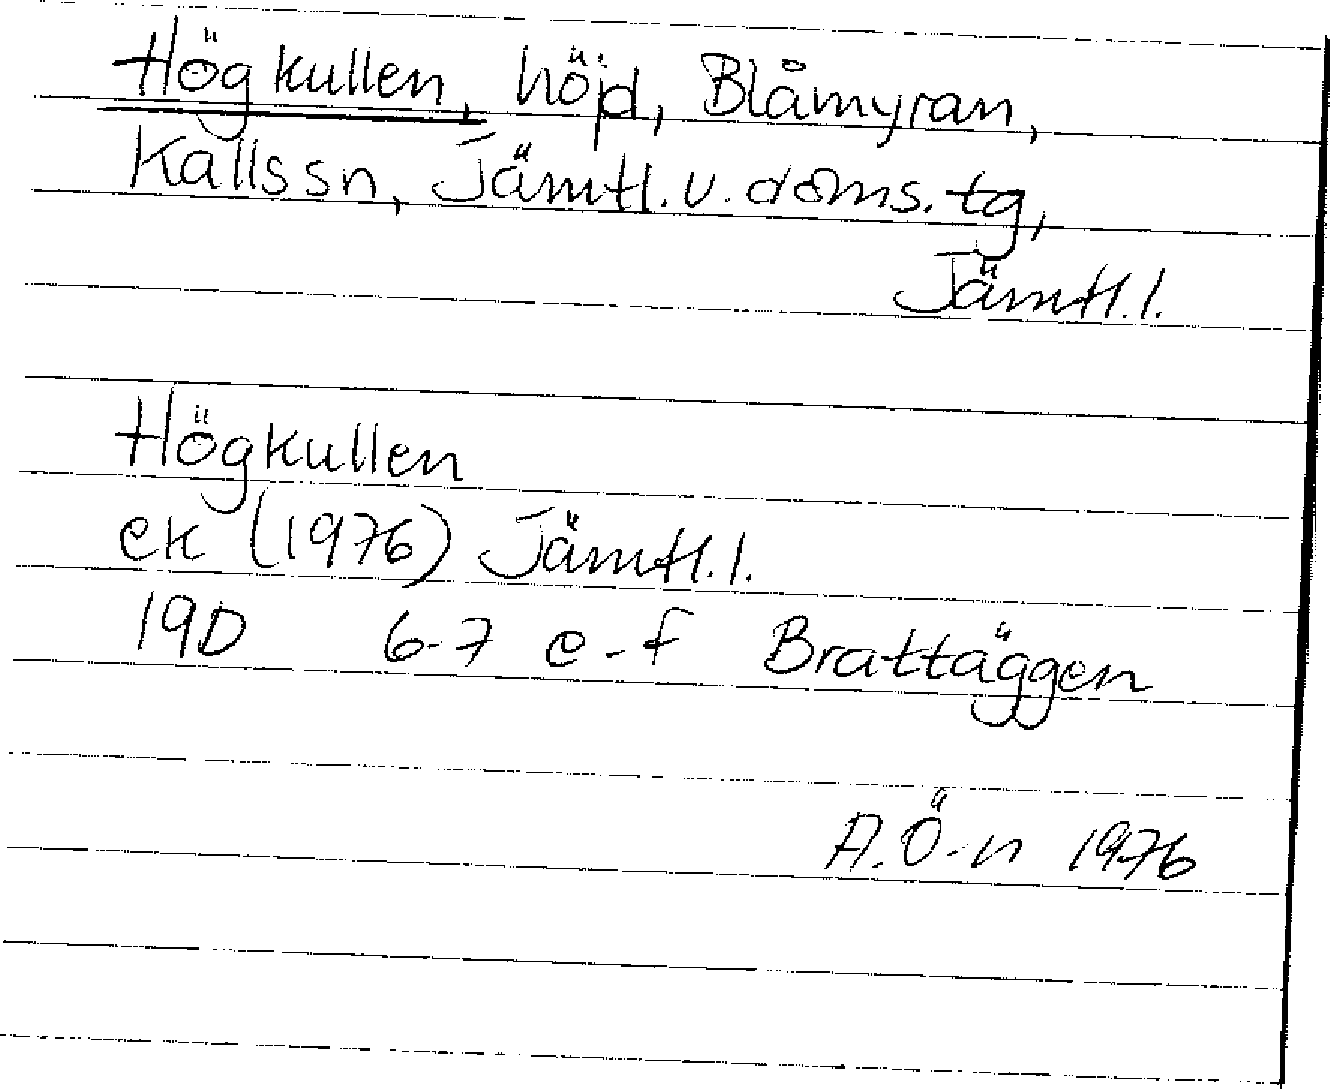 Högkullen, höjd, Blåmyran,
Kallssn, Jämtl.v.doms.tg,
Jämtl.l.
Högkullen
ek (1976) Jämtl.l.
19D 6-7 e-f Brattäggen
A.Ö-n 1976